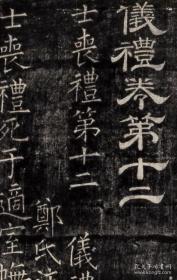 儀禮卷第十二
士喪禮第十二 儀禮
鄭氏注
士喪禮死于適室幠